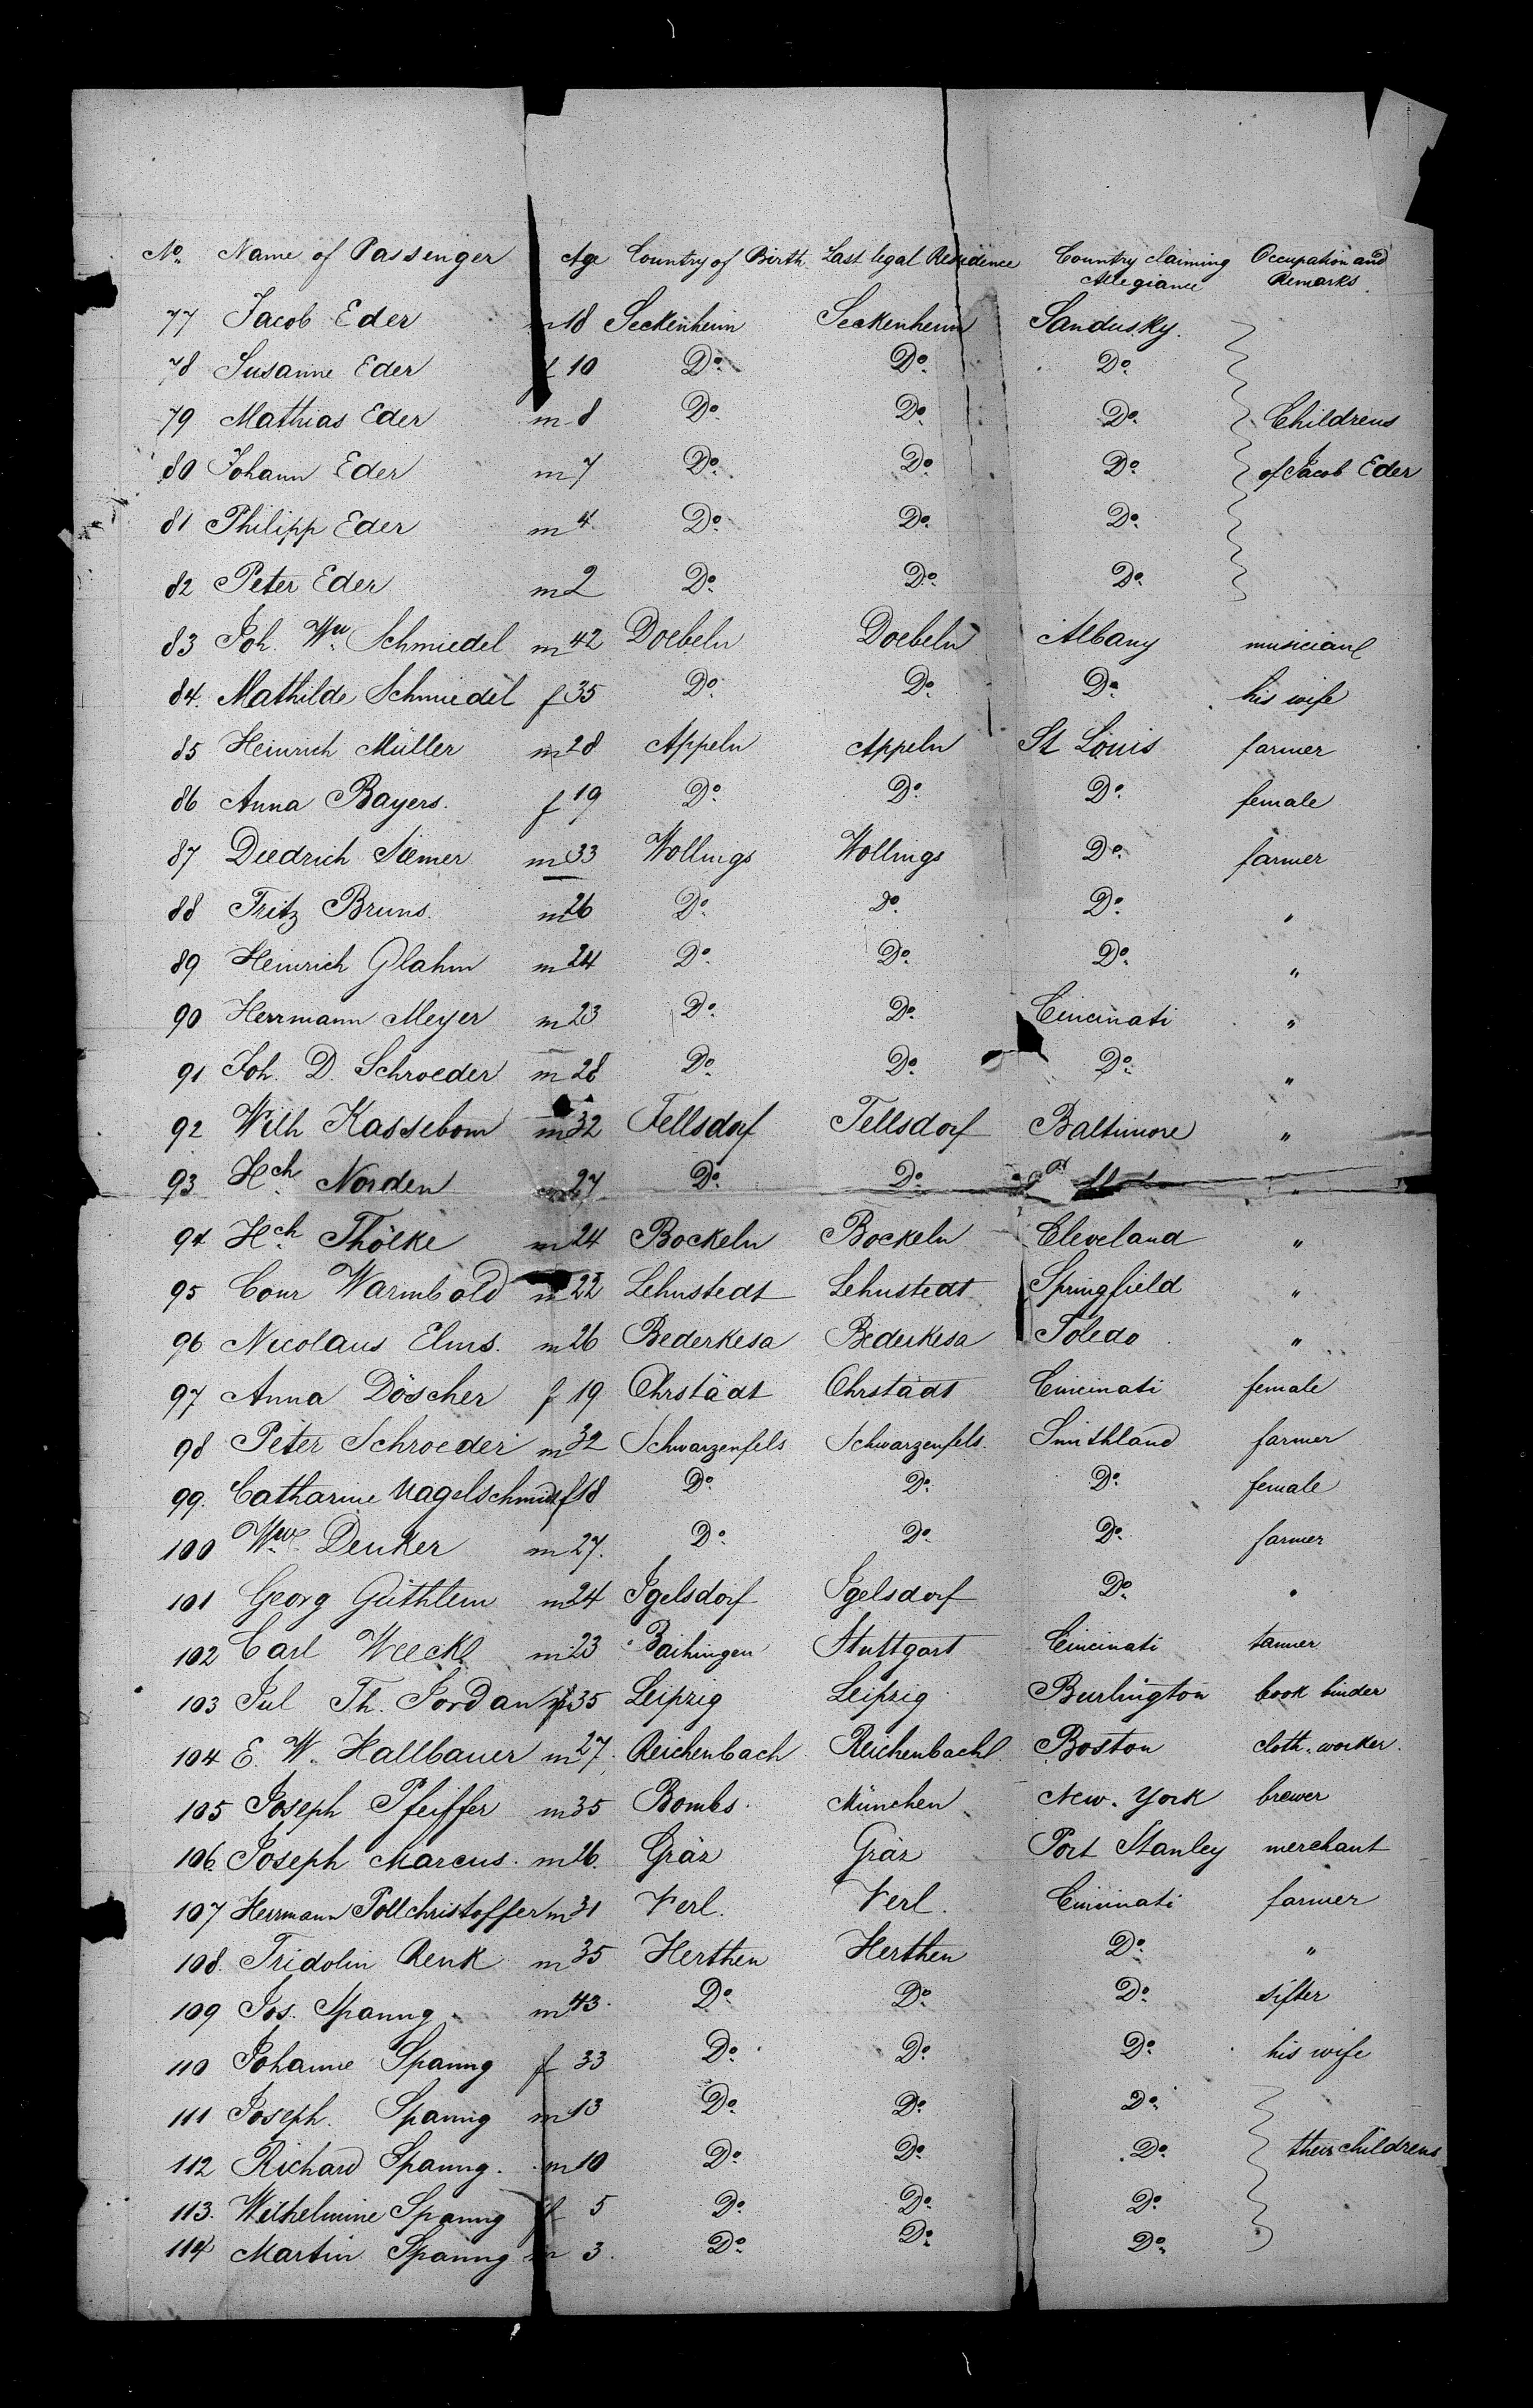 No. Name of Passenger Age Country of Birth Last legal Residence Country claiming Allegiance Occupation and Remarks.
77 Jacob Eder m 18 Seckenheim Seckenheim Sandusky.
78 Susanne Eder f 10 Do. Do. Do.
79 Mathias Eder m 8 Do. Do. Do. Childrens
80 Johann Eder m 7 Do. Do. Do. of Jacob Eder
81 Philipp Eder m 4 Do. Do. Do.
82 Peter Eder m 2 Do. Do. Do.
83 Joh. Wm. Schmiedel m 42 Doebeln Doebeln Albany musician
84. Mathilde Schmiedel f 35 Do. Do. Do. his wife
85 Heinrich Müller m 28 Appeln Appeln St Louis farmer
86 Anna Bayers. f 19 Do. Do. Do. female
87 Diedrich Siemer m 33 Wollings Wollings Do. farmer
88 Fritz Bruns. m 26 Do. Do. Do. "
89 Heinrich Glahm m 24 Do. Do. Do. "
90 Herrmann Meyer m 23 Do. Do. Cincinati "
91 Joh. D. Schroeder m 28 Do. Do. Do. "
92 Wilh Kassebom m 32 Fellsdorf Tellsdorf Baltimore "
93 Hch. Norden m 27 Do. Do. "
94 Hch. Thölke m 24 Bockeln Bockeln Cleveland "
95 Conr Warmbold m 22 Lehnstedt Lehnstedt Springfield "
96 Nicolaus Elms. m 26 Bederkesa Bederkesa Toledo "
97 Anna Döscher f 19 Ohrstädt Ohrstädt Cincinati female
98 Peter Schroeder m 32 Schwarzenfels Schwarzenfels. Smithland farmer
99. Catharine Nagelschmidt f 18 Do. Do. Do. female
100 Wm. Denker m 27. Do. Do. Do. farmer
101 Georg Güthlein m 24 Igelsdorf Igelsdorf Do. "
102 Carl m 23 Vaihingen Stuttgart Cincinati tanner
103 Jul Th. Jordan m 35 Leipzig Leipzig Burlington book binder
104 E. W. Hallbauer m 27. Reichenbach Reichenbach Boston cloth-worker.
105 Joseph Pfeiffer m 35 Bombs. München New-York brewer
106. Joseph Marcus. m 26. Gräz Gräz Port Stanley merchant
107 Herrmann Pollchristoffer m 31 Verl. Verl. Cincinati farmer
108. Fridolin Renk m 35 Herthen Herthen Do. "
109 Jos. Spanng m 43. Do. Do. Do. sifter
110 Johanne Spanng f 33 Do. Do. Do. his wife
111 Joseph. Spanng m 13 Do. Do. Do.
112 Richard Spanng. m 10 Do. Do. Do. their childrens
113. Wilhelmine Spanng f 5 Do. Do. Do.
114 Martin Spanng m 3. Do. Do. Do.